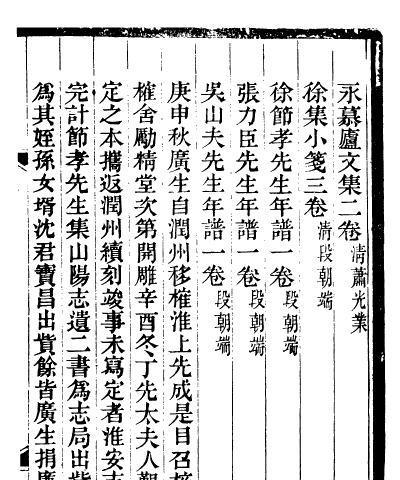 永慕廬文集二卷 清蕭光業
徐集小箋三卷 清段朝端
徐節孝先生年譜一卷 段朝端
張力臣先生年譜一卷 段朝端
吳山夫先生年譜一卷 段朝端
庚申秋廣生自潤州移榷淮上先成是目召
榷舍勵精堂次第開雕辛酉冬丁先太夫人
定之本攜返潤州續刻竣事未寫定者淮安
完計節孝先生集山陽志遺二書爲志局出
爲其姪孫女壻沈君寶昌出貲餘皆廣生捐